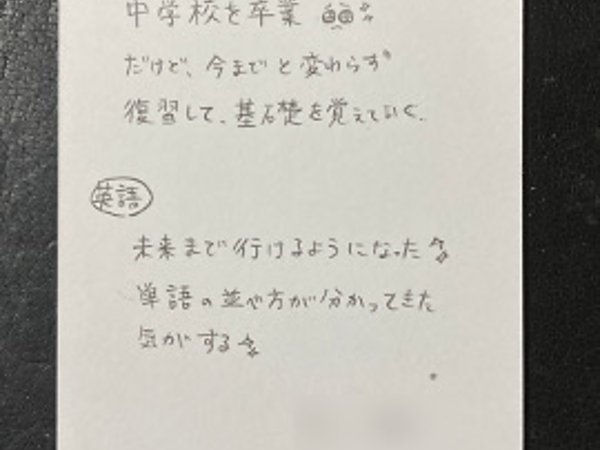 中学校を卒業
だけど、今までと変わらず
復習して、基礎を覚えていく.
英語
未来まで行けるようになった
単語の並べ方が分かってきた
気がする